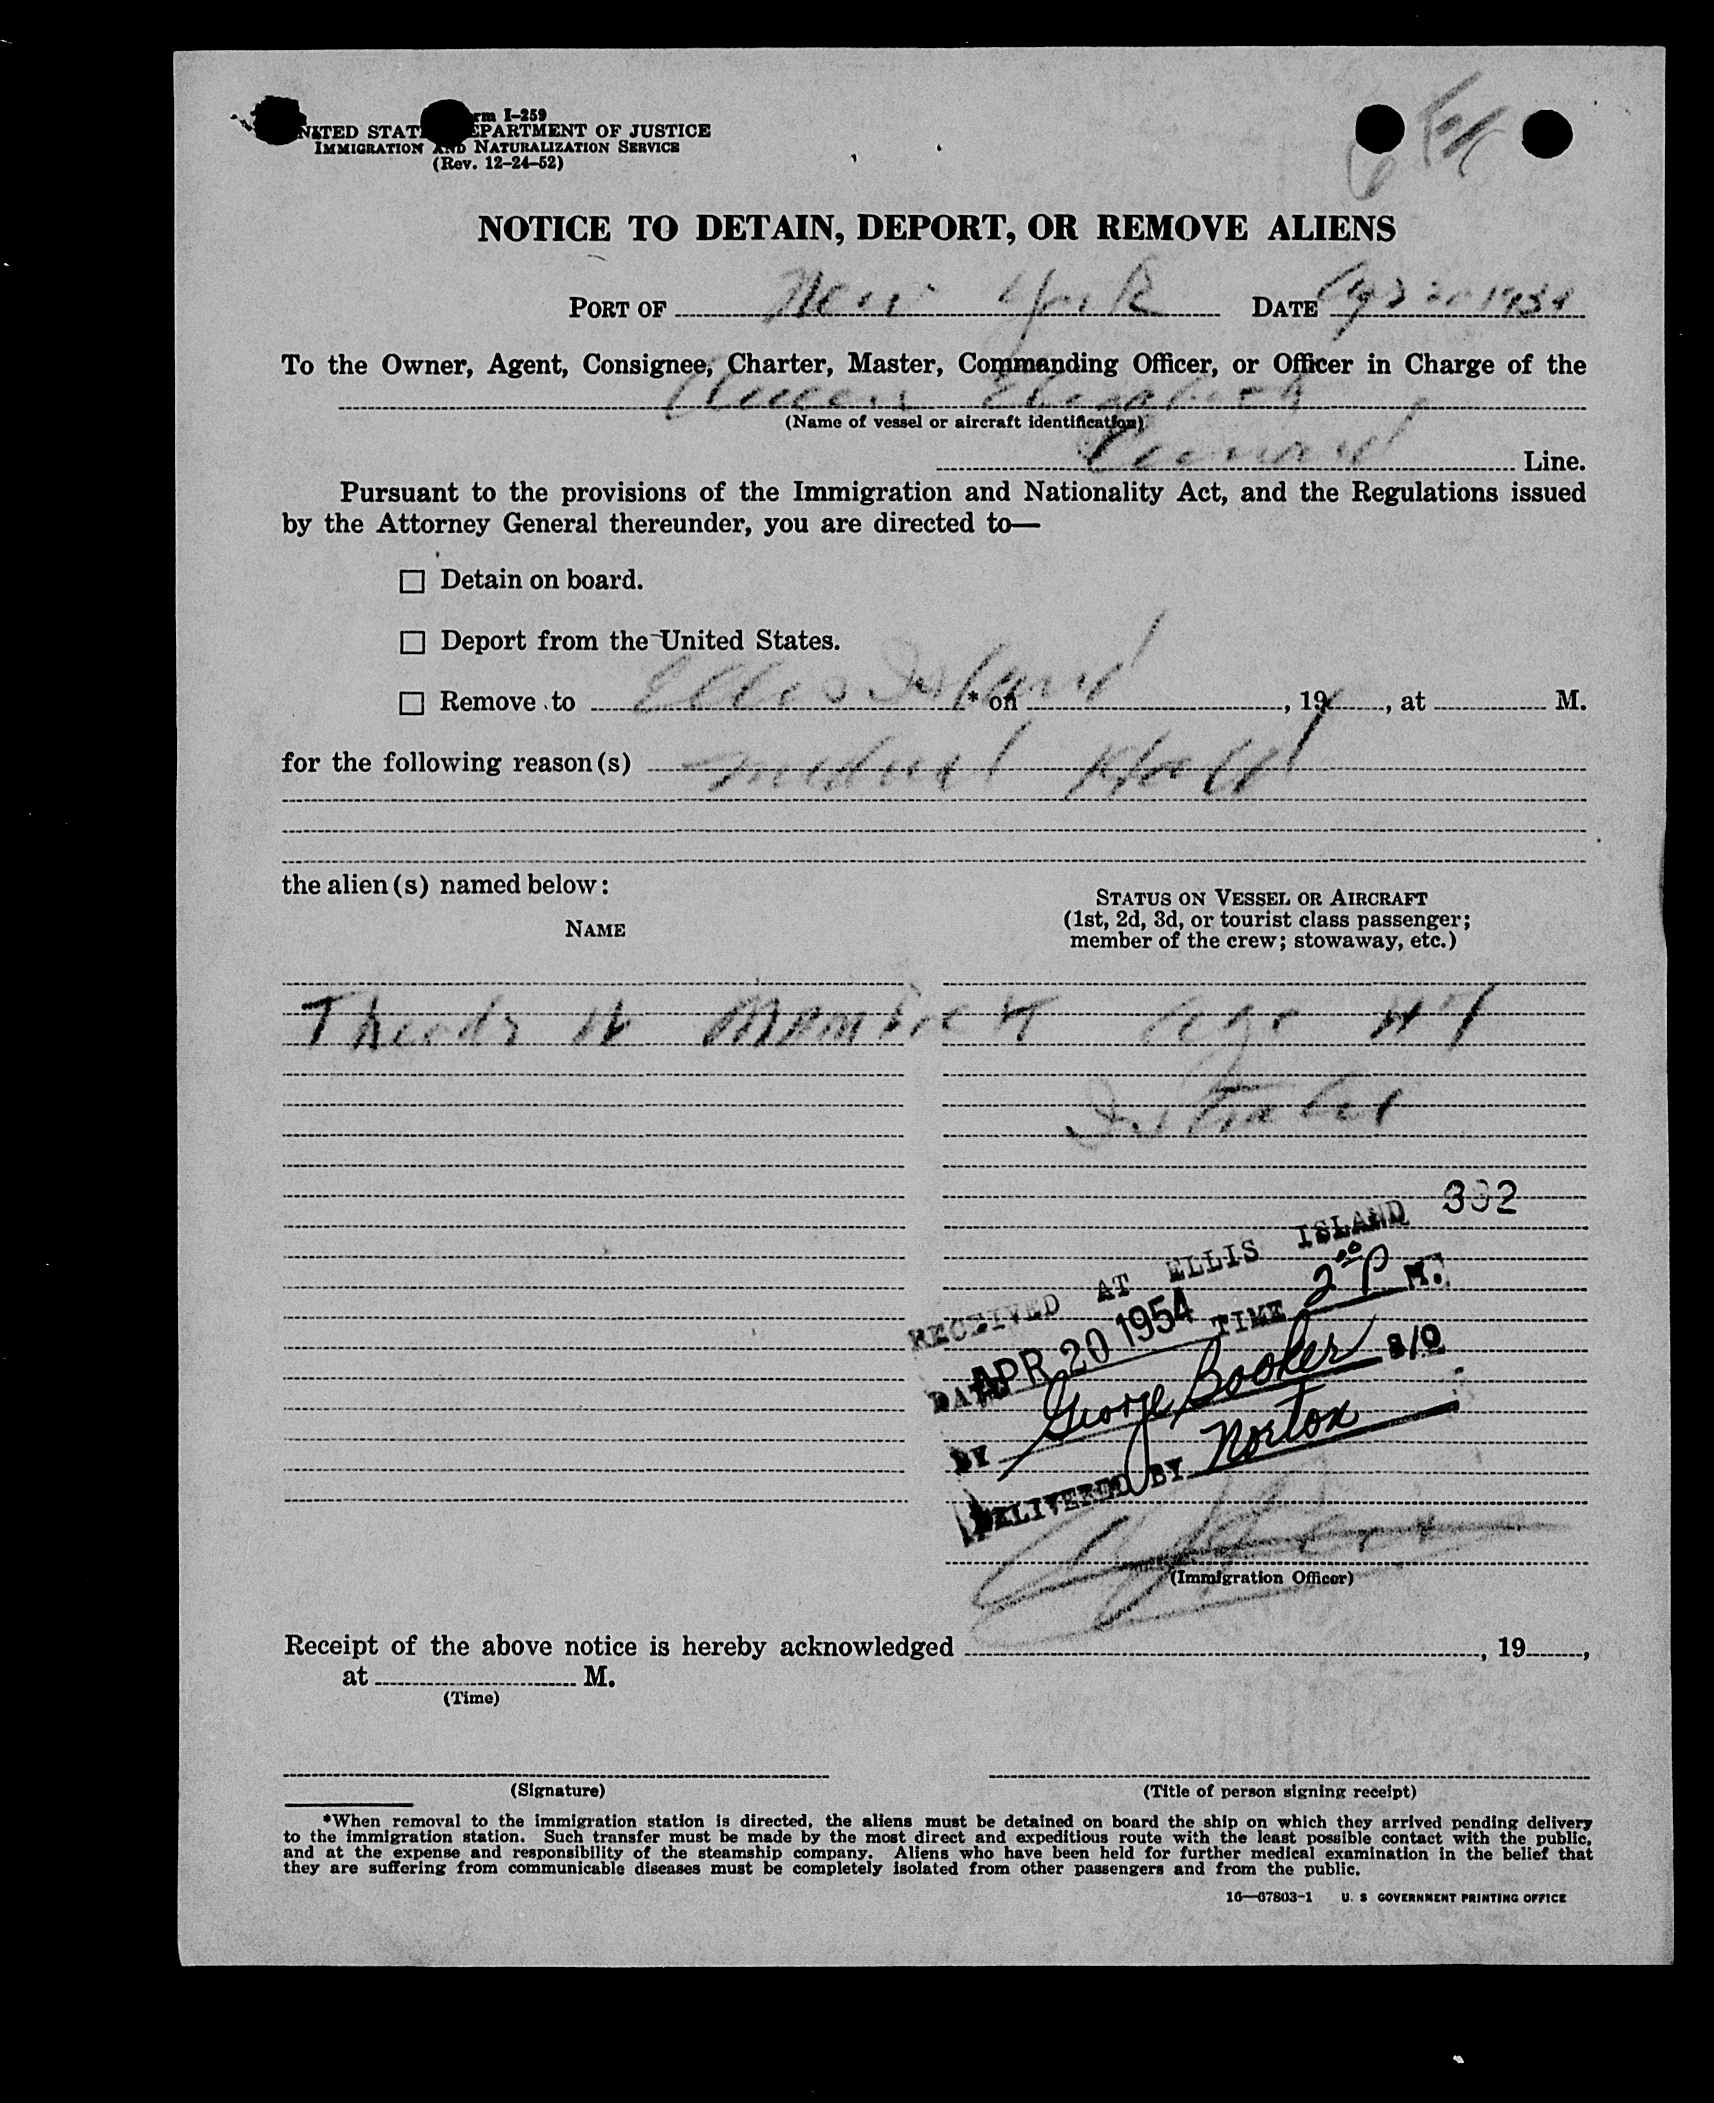 rm I-259
NITED STAT EPARTMENT OF JUSTICE
IMMIGRATION AND NATURALIZATION SERVICE
(Rev. 12-24-52)
NOTICE TO DETAIN, DEPORT, OR REMOVE ALIENS
PORT OF New York DATE 1954
To the Owner, Agent, Consignee, Charter, Master, Commanding Officer, or Officer in Charge of the
Queen Elizabeth
(Name of vessel or aircraft identification)
Cunard Line.
Pursuant to the provisions of the Immigration and Nationality Act, and the Regulations issued
by the Attorney General thereunder, you are directed to—
☐ Detain on board.
☐ Deport from the United States.
☐ Remove to Ellis Island * on , 19 , at M.
for the following reason(s) medical Hold
the alien(s) named below:
NAME
STATUS ON VESSEL OR AIRCRAFT
(1st, 2d, 3d, or tourist class passenger;
member of the crew; stowaway, etc.)
age 47
332
RECEIVED AT ELLIS ISLAND
DATE APR 20 1954 TIME 2 00 P M.
BY George Booker S/O
DELIVERED BY Norton
(Immigration Officer)
Receipt of the above notice is hereby acknowledged , 19 ,
at M.
(Time)
(Signature)
(Title of person signing receipt)
*When removal to the immigration station is directed, the aliens must be detained on board the ship on which they arrived pending delivery
to the immigration station. Such transfer must be made by the most direct and expeditious route with the least possible contact with the public,
and at the expense and responsibility of the steamship company. Aliens who have been held for further medical examination in the belief that
they are suffering from communicable diseases must be completely isolated from other passengers and from the public.
16—67803-1 U. S GOVERNMENT PRINTING OFFICE